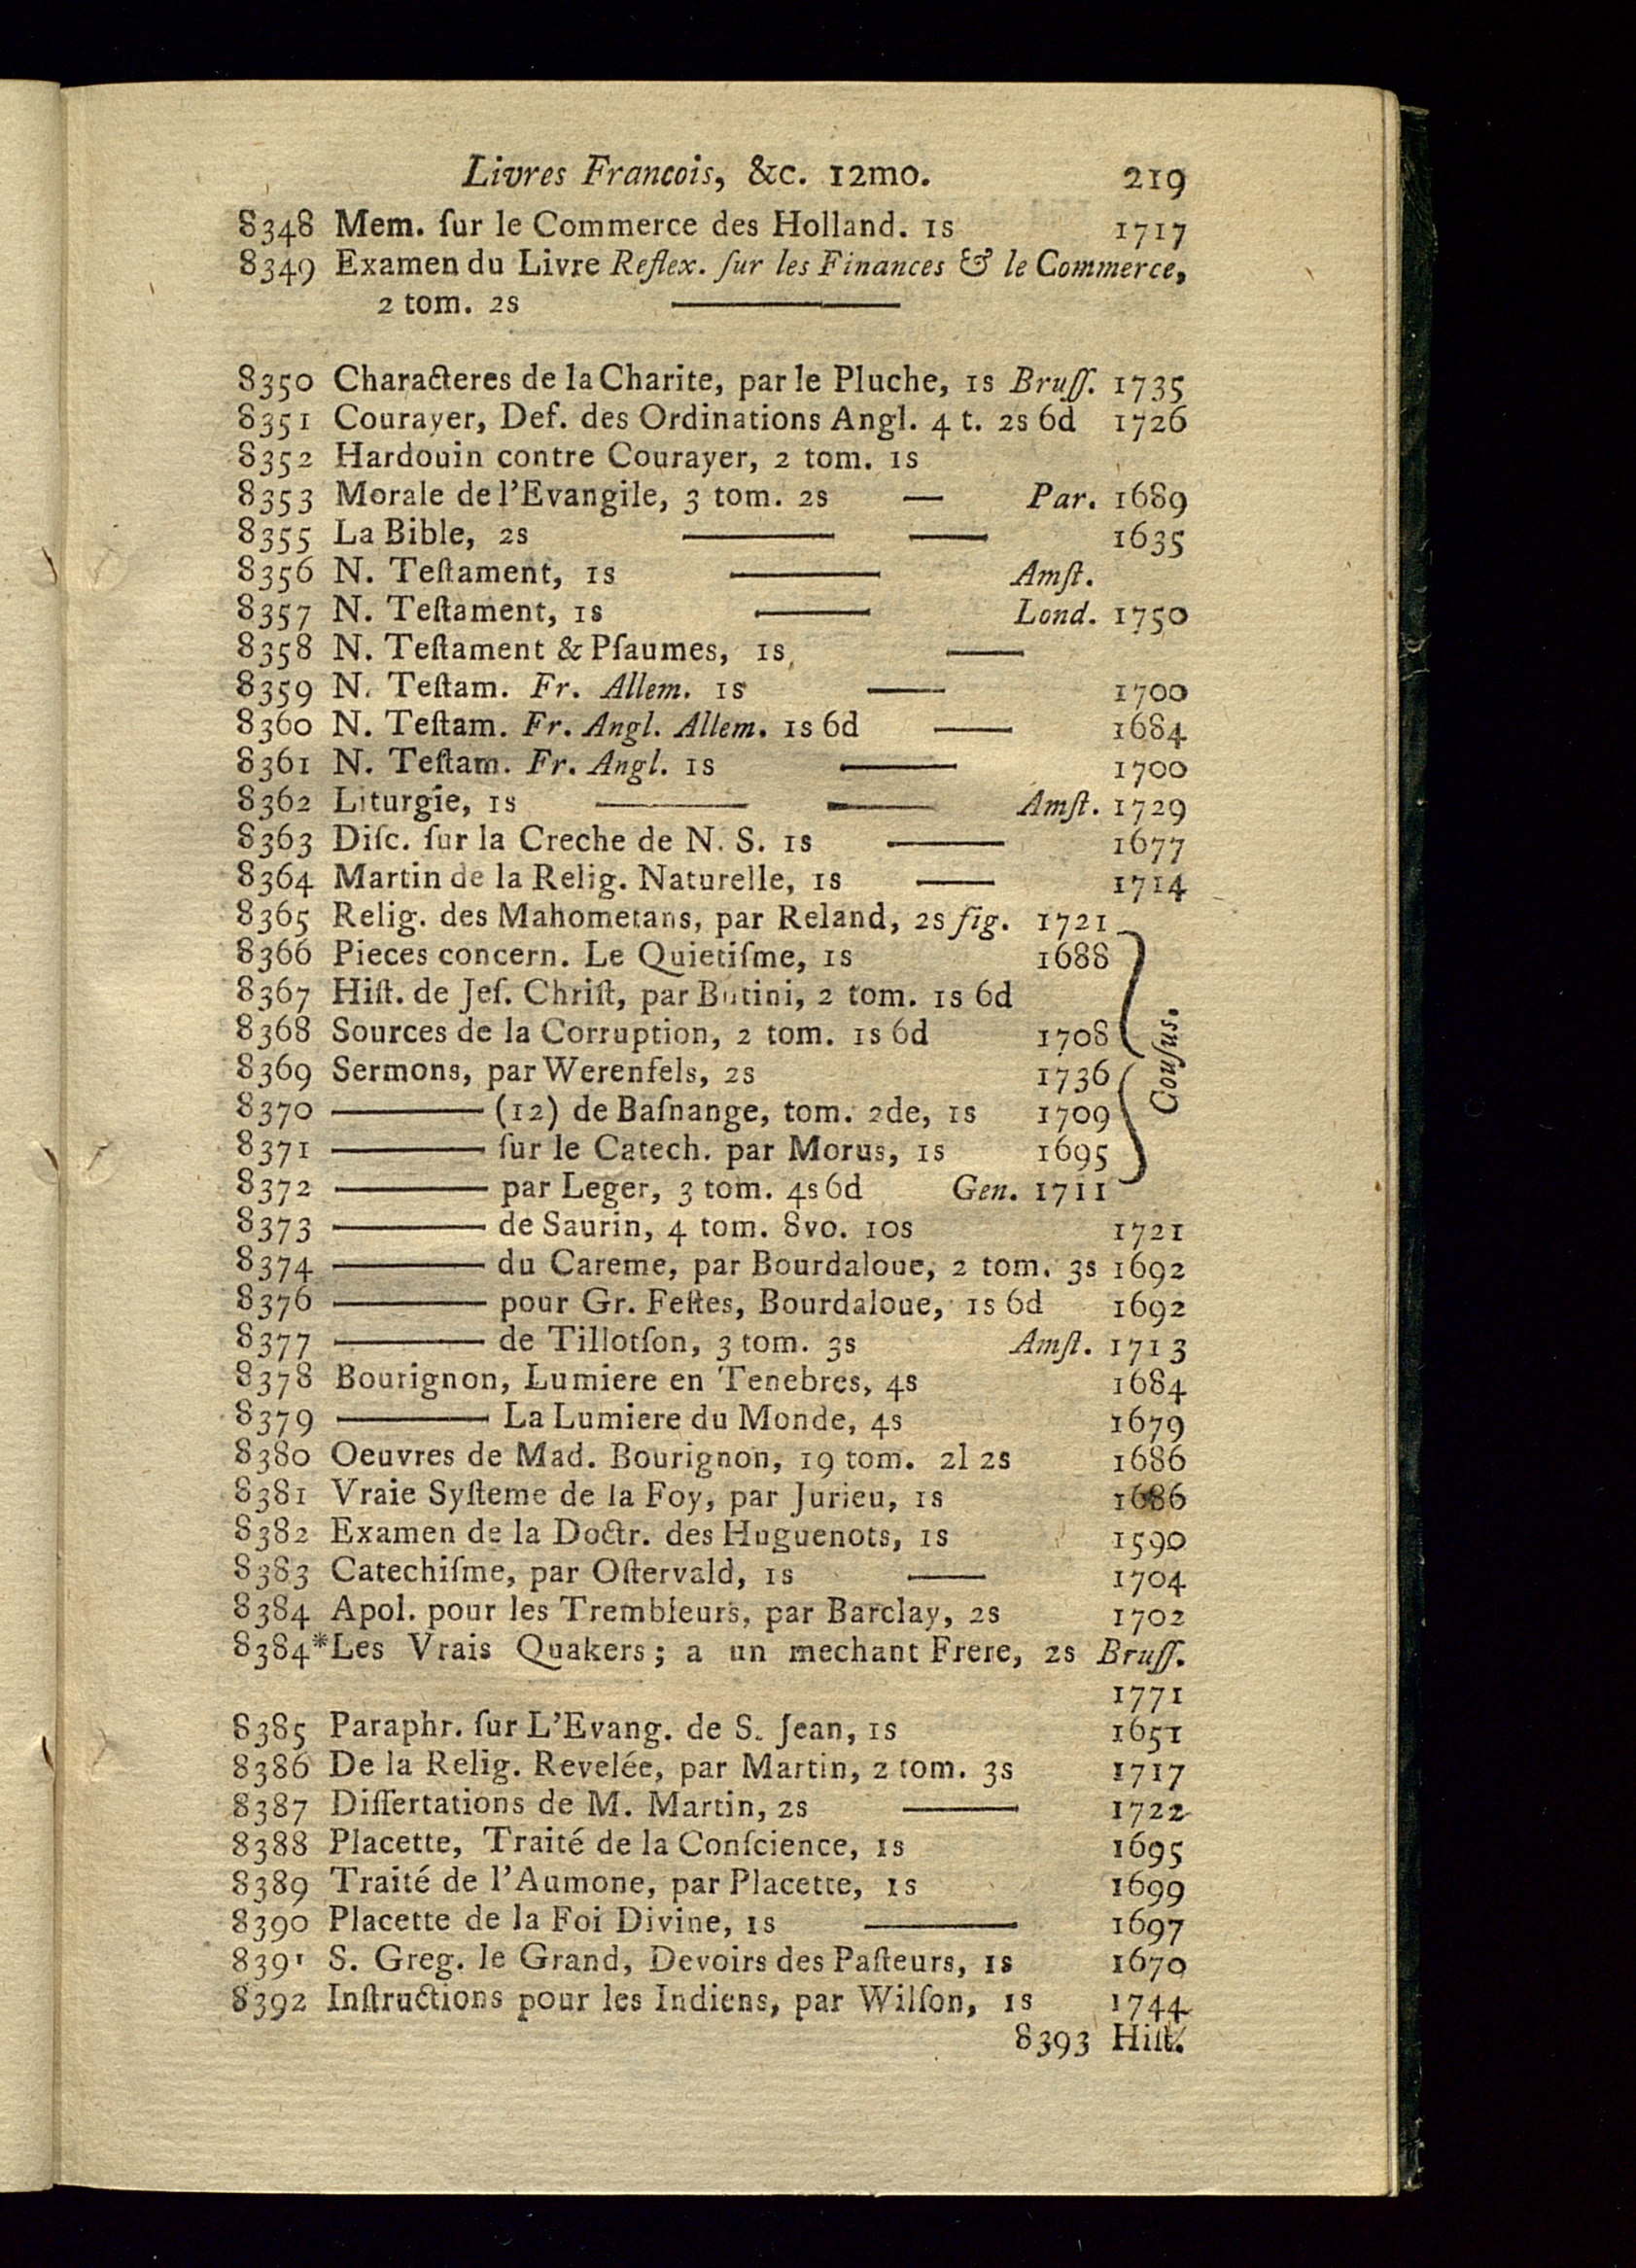 Livres Francois, &c. 12mo. 219
8348 Mem. ſur le Commerce des Holland. 1s 1717
8349 Examen du Livre Reflex. ſur les Finances & le Commerce,
2 tom. 2s ———
8350 Characteres de la Charite, par le Pluche, 1s Bruſſ. 1735
8351 Courayer, Def. des Ordinations Angl. 4 t. 2s 6d 1726
8352 Hardouin contre Courayer, 2 tom. 1s
8353 Morale de l'Evangile, 3 tom. 2s — Par. 1689
8355 La Bible, 2s —— — 1635
8356 N. Teſtament, 1s —— Amſt.
8357 N. Teſtament, 1s —— Lond. 1750
8358 N. Teſtament & Pſaumes, 1s —
8359 N. Teſtam. Fr. Allem. 1s — 1700
8360 N. Teſtam. Fr. Angl. Allem. 1s 6d — 1684
8361 N. Teſtam. Fr. Angl. 1s —— 1700
8362 Liturgie, 1s —— —— Amſt. 1729
8363 Diſc. ſur la Creche de N. S. 1s —— 1677
8364 Martin de la Relig. Naturelle, 1s — 1714
8365 Relig. des Mahometans, par Reland, 2s fig. 1721
8366 Pieces concern. Le Quietiſme, 1s 1688
8367 Hiſt. de Jeſ. Chriſt, par Butini, 2 tom. 1s 6d
8368 Sources de la Corruption, 2 tom. 1s 6d 1708
Couſus.
8369 Sermons, par Werenfels, 2s 1736
8370 —— (12) de Baſnange, tom. 2de, 1s 1709
8371 —— ſur le Catech. par Morus, 1s 1695
8372 —— par Leger, 3 tom. 4s 6d Gen. 1711
8373 —— de Saurin, 4 tom. 8vo. 10s 1721
8374 —— du Careme, par Bourdaloue, 2 tom. 3s 1692
8376 —— pour Gr. Feſtes, Bourdaloue, 1s 6d 1692
8377 —— de Tillotſon, 3 tom. 3s Amſt. 1713
8378 Bourignon, Lumiere en Tenebres, 4s 1684
8379 —— La Lumiere du Monde, 4s 1679
8380 Oeuvres de Mad. Bourignon, 19 tom. 2l 2s 1686
8381 Vraie Syſteme de la Foy, par Jurieu, 1s 1686
8382 Examen de la Doctr. des Huguenots, 1s 1590
8383 Catechiſme, par Oſtervald, 1s — 1704
8384 Apol. pour les Trembleurs, par Barclay, 2s 1702
8384*Les Vrais Quakers; a un mechant Frere, 2s Bruſſ.
1771
8385 Paraphr. ſur L'Evang. de S. Jean, 1s 1651
8386 De la Relig. Revelée, par Martin, 2 tom. 3s 1717
8387 Diſſertations de M. Martin, 2s —— 1722
8388 Placette, Traité de la Conſcience, 1s 1695
8389 Traité de l'Aumone, par Placette, 1s 1699
8390 Placette de la Foi Divine, 1s —— 1697
8391 S. Greg. le Grand, Devoirs des Paſteurs, 1s 1670
8392 Inſtructions pour les Indiens, par Wilſon, 1s 1744
8393 Hiſt.